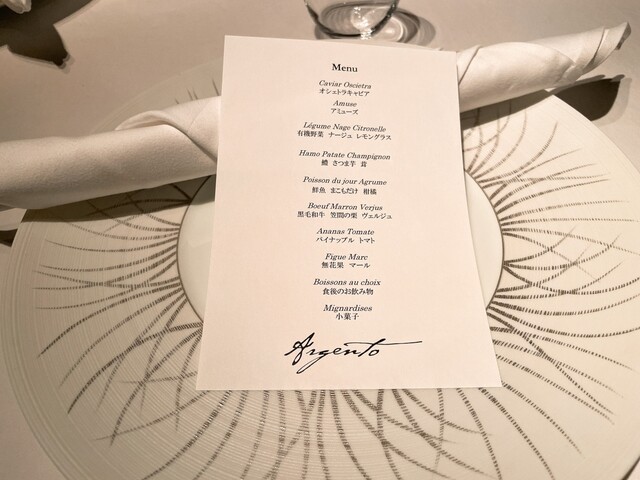 Menu
Caviar Oscietra
オシェトラキャビア
Amuse
アミューズ
Légume Nage Citronelle
有機野菜 ナージュ レモングラス
Hamo Patate Champignon
鱧 さつま芋 茸
Poisson du jour Agrume
鮮魚 まこもだけ 柑橘
Boeuf Marron Verjus
黒毛和牛 笠間の栗 ヴェルジュ
Ananas Tomate
パイナップル トマト
Figue Marc
無花果 マール
Boissons au choix
食後のお飲み物
Mignardises
小菓子
Argento